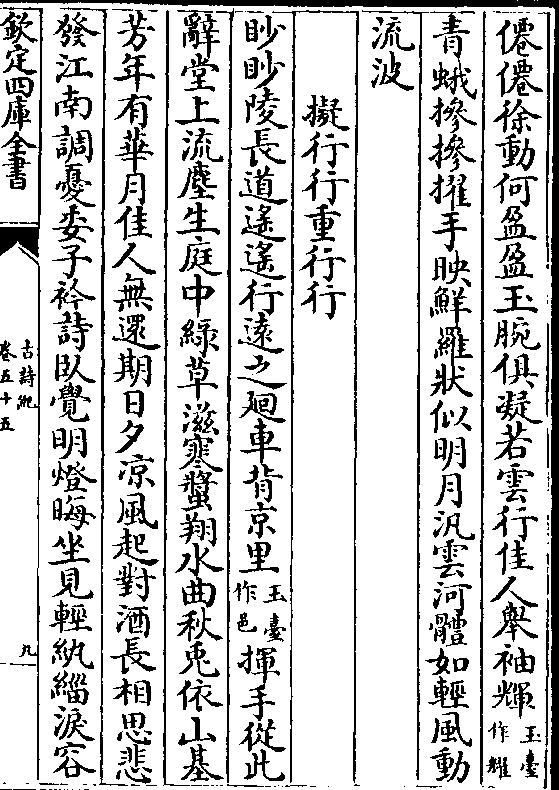 僊僊徐動何盈盈玉腕俱凝若雲行佳人舉袖輝玉臺作耀
青蛾摻摻擢手映鮮羅狀似明月汎雲河體如輕風動
流波
擬行行重行行
眇眇陵長道遙遙行遠之廻車背京里玉臺作邑揮手從此
辭堂上流塵生庭中綠草滋寒螿翔水曲秋兎依山基
芳年有華月佳人無還期日夕凉風起對酒長相思悲
發江南調憂委子衿詩臥覺明燈晦坐見輕紈緇淚容
欽定四庫全書
古詩紀
卷五十五
九